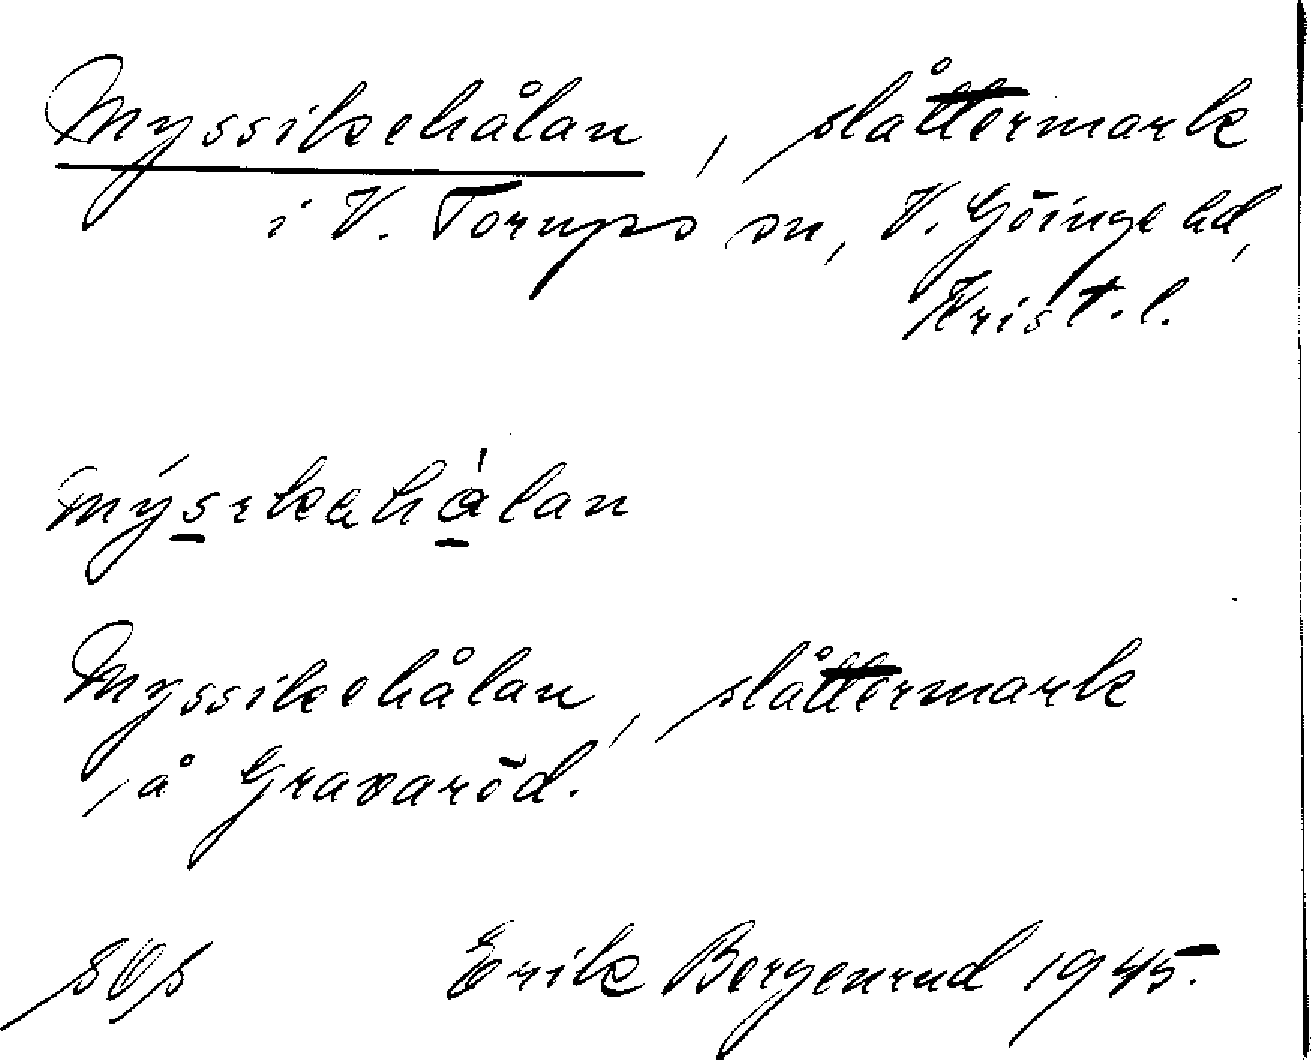 Myssikehålan, slåttermark
i V. Torups sn, V. Göinge hd,
Krist. l.
mýsıkahàlan
Myssikehålan, slåttermark
på Gravaröd.
Erik Bergenrud 1945.